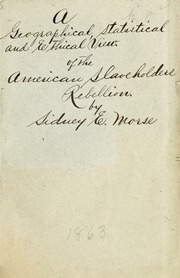 A
Geographical, Statistical
and Ethical View.
of the
American Slaveholders
Rebellion.
by
Sidney E. Morse
1863